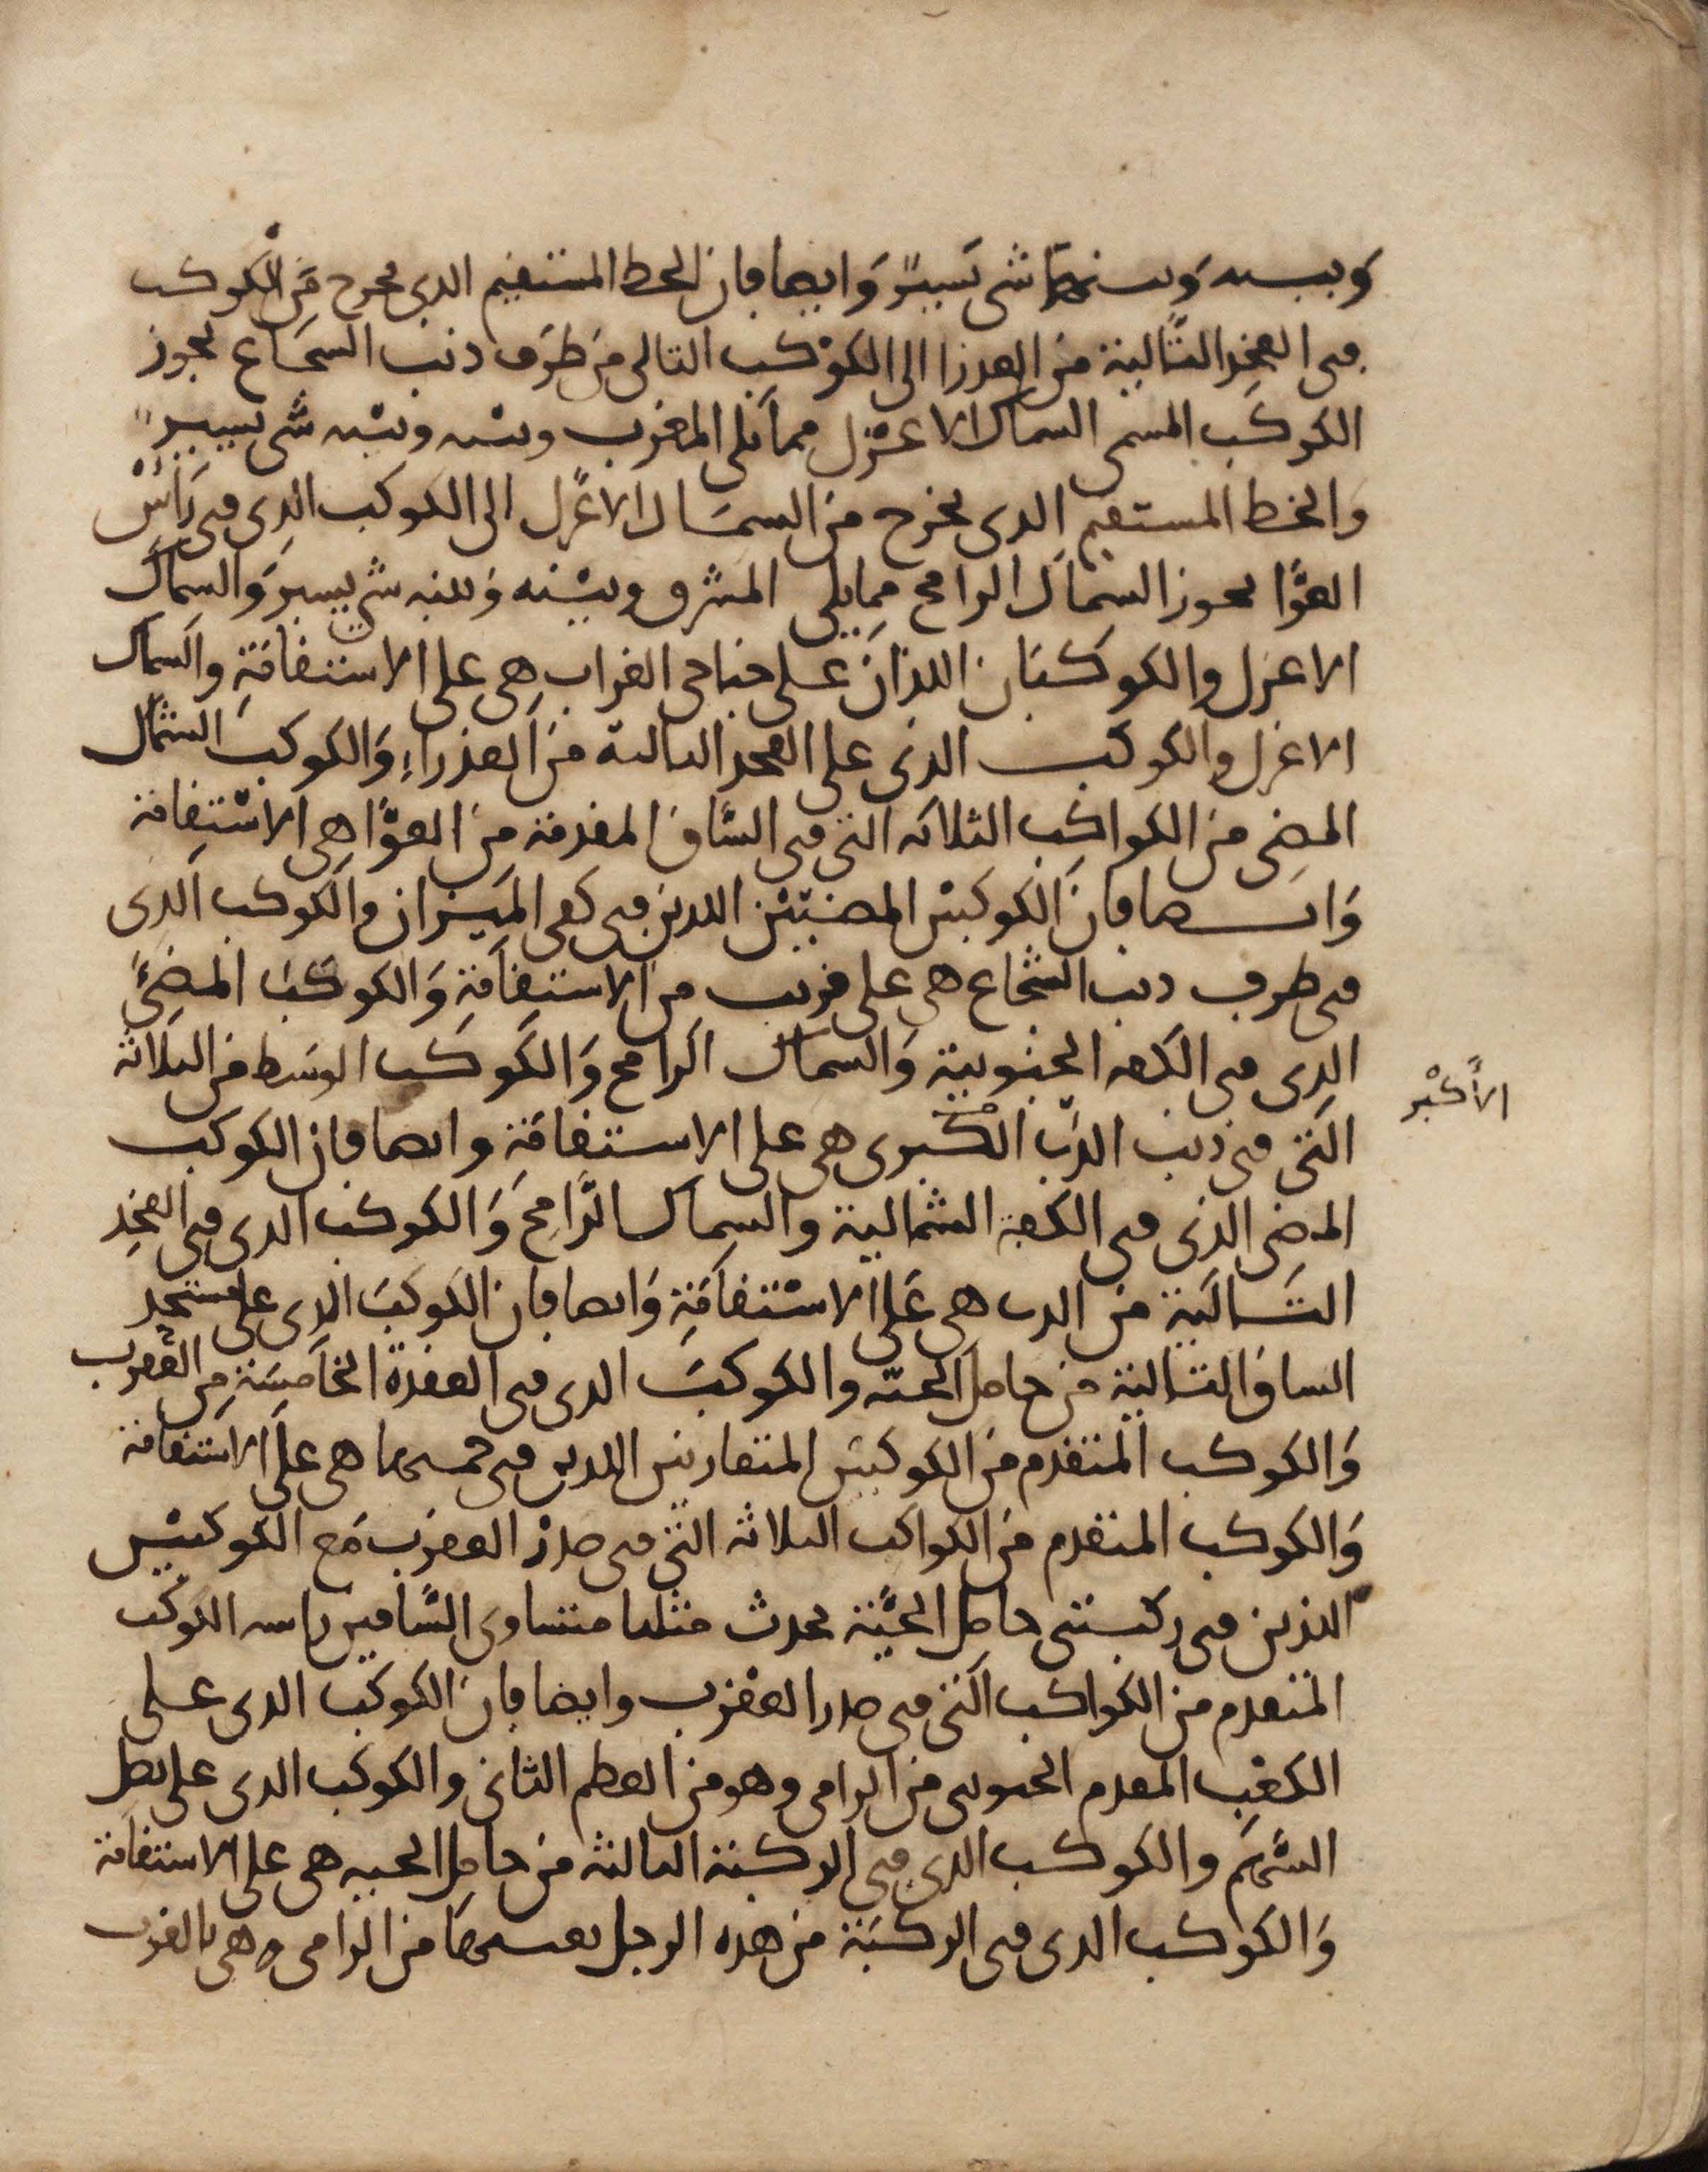 وبينه وبينهما شى يسير وايضا فان الخط المستقيم الذى يخرج من الكوكب
فى الفخد التالية من العذرا الى الكوكب التالى من طرف ذنب الشجاع يجوز
الكوكب المسمى السماك الاعزل مما يلى المغرب وبينه وبينه شى يسير
والخط المستقيم الدى يخرج من السماك الاعزل الى الكوكب الذى فى رأس
العوّا يجوز السماك الرامح مما يلى المشرق وبينه وبينه شى يسير والسماك
الاعزل والكوكبان اللذان على جناحى الغراب هى على الاستقامة والسماك
الاعزل والكوكب الذى على الفخد التالية من العذراء والكوكب الشمال
المضى من الكواكب الثلاثه التى فى الساق المقدمة من العوّا هى الاستقامة
وايضا فان الكوكبين المضيين اللذين فى كفى الميزان والكوكب الدى
فى طرف ذنب الشجاع هى على قريب من الاستقامة والكوكب المضئ
الذى فى الكفه الجنوبية والسماك الرامح والكوكب الوسط من الثلاثة
التى فى ذنب الدب الكبرى هى على الاستقامة وايضا فان الكوكب
الاكبر
المضى الذى فى الكفة الشمالية والسماك الرامح والكوكب الدى فى الفخذ
التالية من الدب هى على الاستقامة وايضا فان الكوكب الذى على
الساق التالية من حامل الحيّه والكوكب الدى فى العقدة الخامسة من العقرب
والكوكب المتقدم من الكوكبين المتقاربين اللذين فى حمتها هى على الاستقامة
والكوكب المتقدم من الكواكب الثلاثه التى فى صدر العقرب مع الكوكبين
اللذين فى ركبتى حامل الحيّة يحدث مثلثا متساوى الساقين راسه الكوكب
المتقدم من الكواكب التى فى صدر العقرب وايضا فان الكوكب الدى على
الكعب المقدم الجنوبى من الرامى وهو من العظم الثانى والكوكب الدى على نصل
السّهم والكوكب الدى فى الركبة التالية من حامل الحيه هى على الاستقامة
والكوكب الدى فى الركبة من هذه الرجل بعينها من الرامى وهى بالقرب